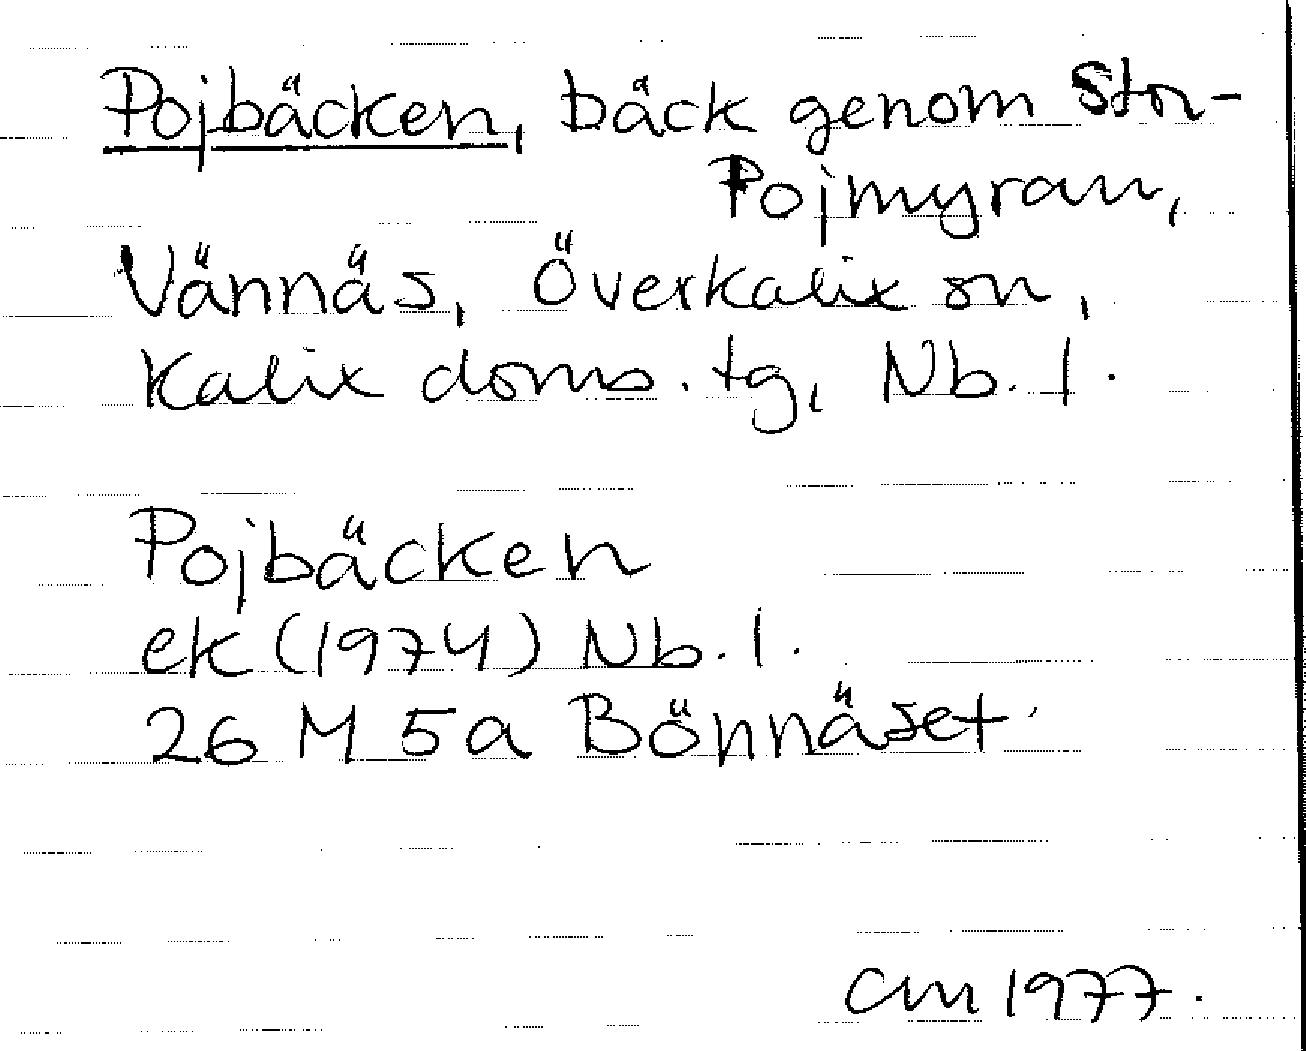 Pojbäcken, bäck genom Stor-
Pojmyran,
Vännäs, Överkalix sn,
Kalix doms. tg, Nb. l.
Pojbäcken
ek (1974) Nb. l.
26 M 5a Bönnäset
CM 1977.